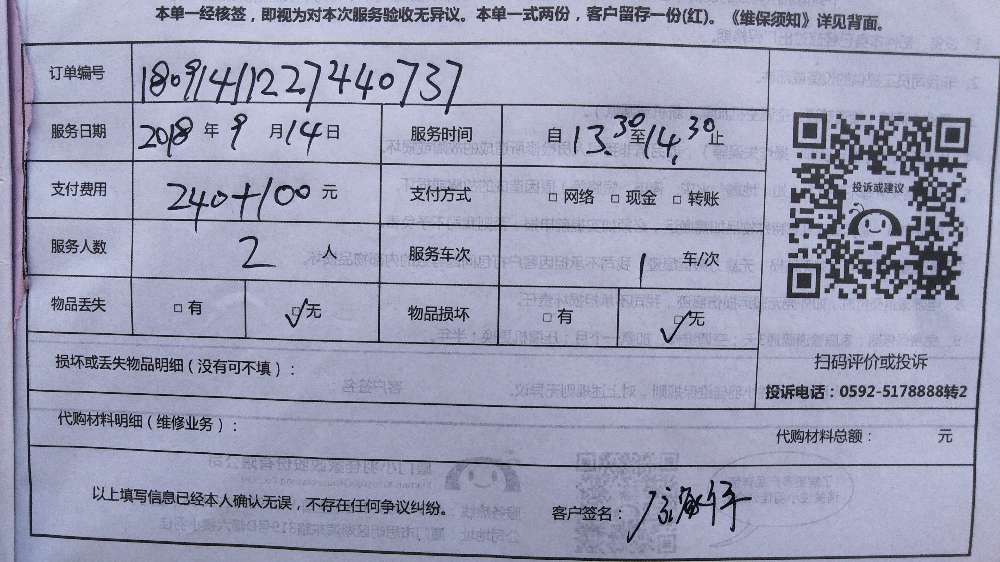 本单一经核签，即视为对本次服务验收无异议。本单一式两份，客户留存一份(红)。《维保须知》详见背面。
订单编号 18091411227440737
服务日期 2018 年 9 月 14 日 服务时间 自 13.30 至 14.30 止
支付费用 240+100 元 支付方式 □ 网络 □ 现金 □ 转账
服务人数 2 人 服务车次 1 车/次
物品丢失 □ 有 ☑ 无 物品损坏 □ 有 ☑ 无
投诉或建议
扫码评价或投诉
投诉电话：0592-5178888转2
损坏或丢失物品明细（没有可不填）：
代购材料明细（维修业务）：
代购材料总额： 元
以上填写信息已经本人确认无误，不存在任何争议纠纷。
客户签名：